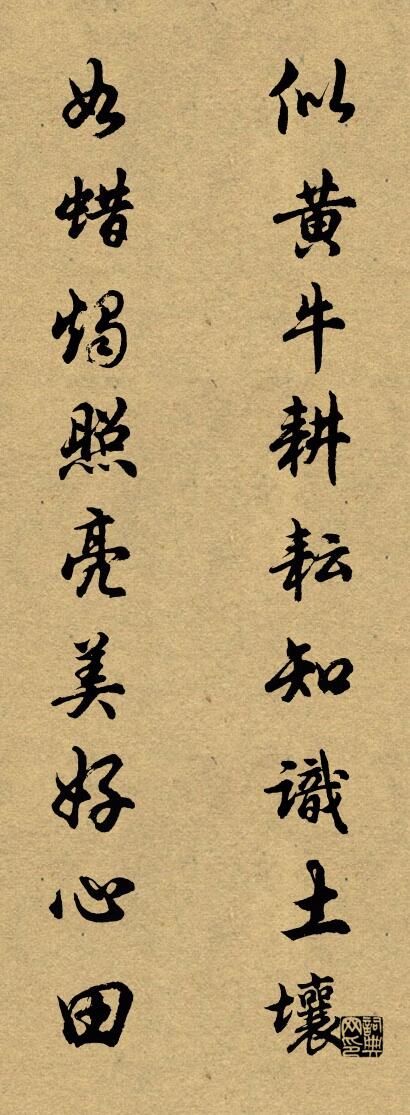 似黄牛耕耘知識土壤
如蜡燭照亮美好心田
詞典网印